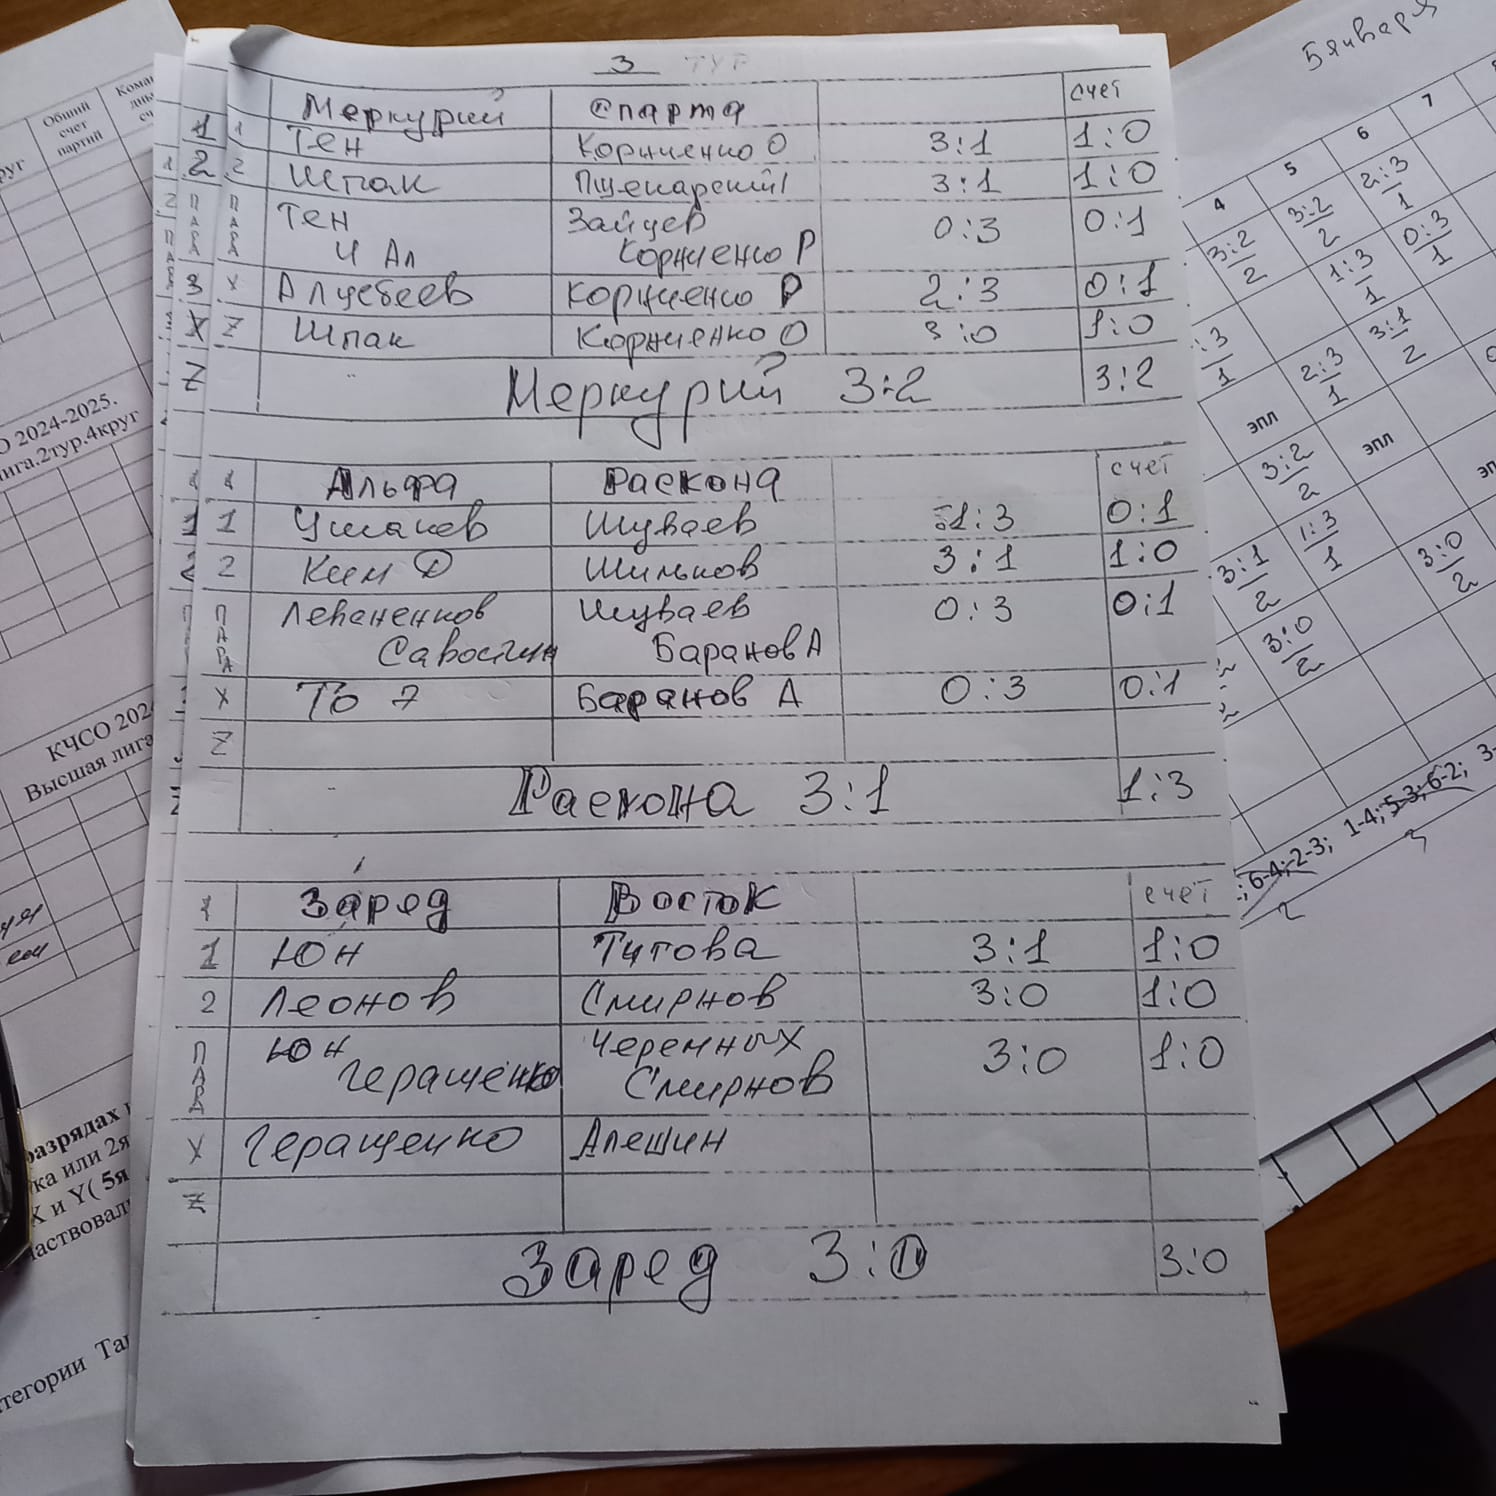 3 ТУР
Меркурий Спарта счет
1 Тен Корниенко О 3:1 1:0
2 Шпак Пщенарский 3:1 1:0
ПАРА Тен Зайцев 0:3 0:1
Ч Ал Корниенко Р
X Алчебеев Корниенко Р 2:3 0:1
Z Шпак Корниенко О 3:0 1:0
Меркурий 3:2 3:2
Альфа Раскона счет
1 Ушаков Шуваев 1:3 0:1
2 Ким Д Шильков 3:1 1:0
ПАРА Шуваев 0:3 0:1
Савостин Баранов А
X Баранов А 0:3 0:1
Z
Раскона 3:1 1:3
Заред Восток счет
1 Юн Титова 3:1 1:0
2 Леонов Смирнов 3:0 1:0
ПАРА Юн Черемных 3:0 1:0
Геращенко Смирнов
X Геращенко Алешин
Z
Заред 3:0 3:0
5 января
4 5 6 7
3:2 3:2 2:3
2 2 1
1:3 0:3
1 1
2:3 3:1
1 2
эпл
3:2 эпл
2
3:1 1:3 3:0
2 1 2
3:0
2
6-4; 2-3; 1-4; 5-3; 6-2;
Общий
счет
партий
О 2024-2025.
ига.2тур.4круг
КЧСО 202
Высшая лига
разрядах
ка или 2я
X и Y( 5я
частвовал
тегории Та